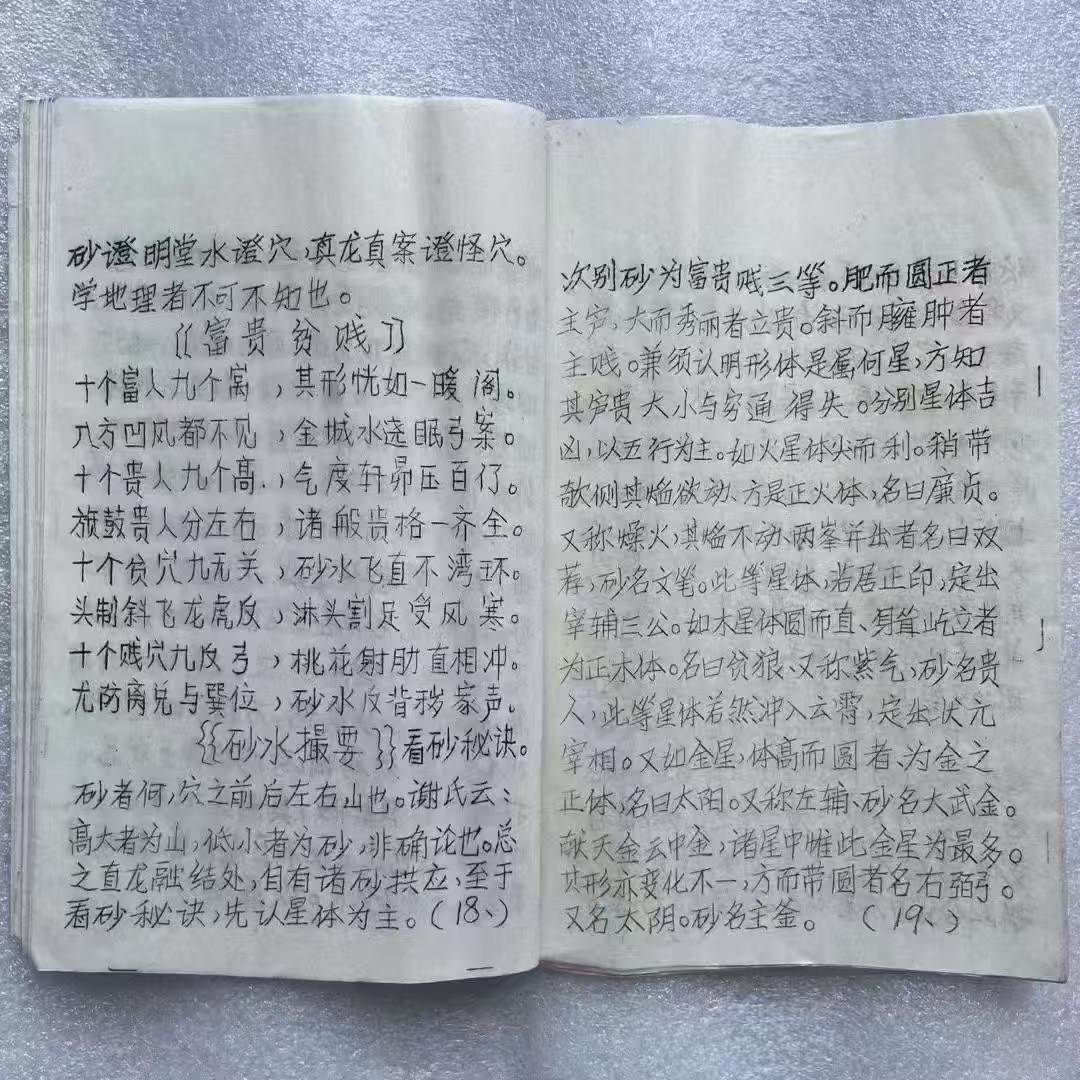 砂澄明堂水澄穴,真龙真案澄怪穴。
学地理者不可不知也。
〖富贵贫贱〗
十个富人九个窝,其形恍如一暖阁。
八方凹风都不见,金城水遶眠弓案。
十个贵人九个高,气度轩昴压百行。
旗鼓贵人分左右,诸般贵格一齐全。
十个贫穴九无关,砂水飞直不湾环。
头制斜飞龙虎反,淋头割足受风寒。
十个贱穴九反弓,桃花射肋直相冲。
尤防离兑与巽位,砂水反背秽家声。
{{砂水撮要}}看砂秘诀。
砂者何,穴之前后左右山也。谢氏云:
高大者为山,低小者为砂,非确论也。总
之直龙融结处,自有诸砂拱应,至于
看砂秘诀,先认星体为主。(18、)
次别砂为富贵贱三等。肥而圆正者
主富,大而秀丽者立贵。斜而臃肿者
主贱。兼须认明形体是属何星,方知
其富贵大小与穷通得失。分别星体吉
凶,以五行为主。如火星体尖而利。稍带
欹侧其焰欲动、方是正火体,名曰廉贞。
又称燥火,其焰不动、两峯并出者名曰双
荐,砂名文笔。此等星体,若居正印,定出
宰辅三公。如木星体圆而直、身耸屹立者
为正木体。名曰贫狼、又称紫气,砂名贵
人,此等星体若然冲入云霄,定出状元
宰相。又如金星,体高而圆者、为金之
正体,名曰太阳。又称左辅、砂名大武金。
献天金云中金,诸星中惟此金星为最多。
其形亦变化不一,方而带圆者名右弼。
又名太阴。砂名主釜。(19、)